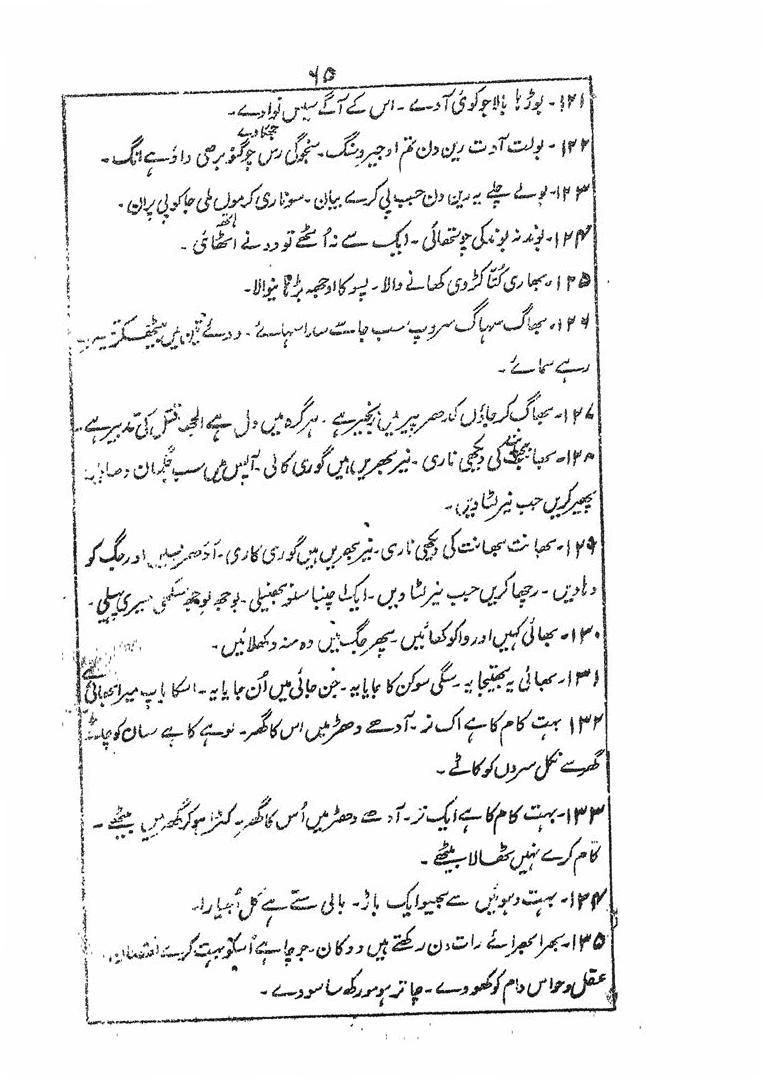 ۶۵
۱۲۱- بوڑھا بالا جو کوئی آوے - اس کے آگے سیس نوادے -
جھکا دے
۱۲۲- بولت آدت رین دن تم اوجیروننگ - سنجوگی رس چوگنو برھی داؤ ہے انگ -
۱۲۳- بولے چلے یہ رین دن جب پی کرے بیان - سو ناری کرموں ملی جا کو پی پران -
۱۲۴- بوند نہ بوند کی چوتھائی - ایک سے نہ اٹھے تو دو نے اٹھائی -
۱۲۵- بھاری کُتّا کڑوی کھانے والا - پسو کا اوجھ بڑھا نیوالا -
۱۲۶- بھاگ سہاگ سروپ سب جا سے سدا سہائے - دوئے تین میں بیٹھ کر
رہے سمائے -
۱۲۷- بھاگ کر جاؤں کدھر پیر میں زنجیر ہے - ہر گرہ میں دل ہے الجھا قتل کی تدبیر ہے -
۱۲۸- بھا کی دیکھی ناری - نیر بھریں ہیں گوری کالی - آپس میں سب
پھیر کریں جب نیر لٹا دیں -
۱۲۹- بھانت بھانت کی دیکھی ناری - نیر بھریں ہیں گوری کاری - آدھر بسیں اور جگ کو
دہادیں - رچھا کریں جب نیر لٹا ویں - ایک اچنبا سنو بھنیلی - بوجھ بوجھ سکھی میری پہیلی -
۱۳۰- بھائی کہیں اور واکو کھائیں - پھر جگ میں وہ منہ دکھلائیں -
۱۳۱- بھائی یہ بھتیجا یہ - سگی سوکن کا جایا یہ - جن جائی میں اُن جایا یہ - اسکا باپ میرا بھائی ہے
۱۳۲ بہت کام کا ہے اک نر - آدھے دھڑ میں اس کا گھر - لوہے کا ہے سان کو چاٹے
گھر سے نکل سروں کو کاٹے -
۱۳۳- بہت کام کا ہے ایک نر - آدھے دھڑ میں اُس کا گھر - کبڑا ہو کر گھر میں بیٹھے -
کام کرے نہیں ٹھالا بیٹھے -
۱۳۴- بہت دہوئیں سے بھیو ایک باڑ - بالی ستے ہے کل اُجیارا -
۱۳۵- بھرا بھرائے رات دن رکھتے ہیں دوکان - جو چاہے اُسکو بہت کرے نقصان
عقل و حواس دام کو کھووے - چاتر ہو مورکھ سا سووے -